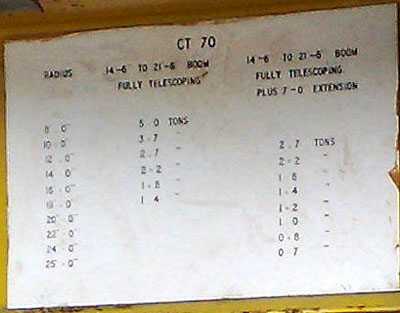 CT 70
RADIUS 14-6" TO 21-6" BOOM 14-6" TO 21-6" BOOM
FULLY TELESCOPING FULLY TELESCOPING
PLUS 7-0" EXTENSION
8'-0" 5.0 TONS
10'-0" 3.7 "
12'-0" 2.7 " 2.7 TONS
14'-0" 2.2 " 2.2 "
16'-0" 1.8 " 1.8 "
18'-0" 1.4 " 1.4 "
20'-0" 1.2 "
22'-0" 1.0 "
24'-0" 0.8 "
25'-0" 0.7 "